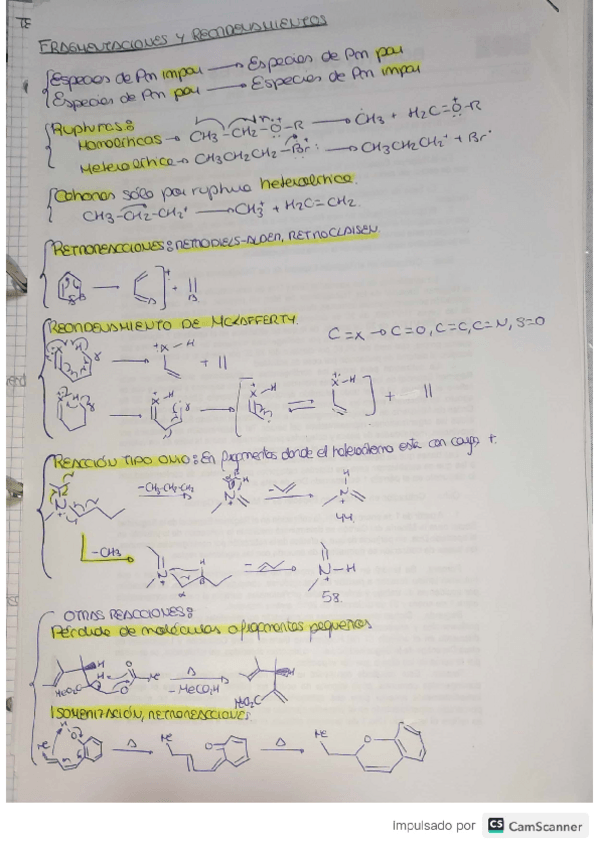 FRAGMENTACIONES Y REORDENAMIENTOS
Especies de Pm impar → Especies de Pm par
Especies de Pm par → Especies de Pm impar
Rupturas:
Homolíticas → CH3-CH2-Ö-R → ĊH3 + H2C=Ö-R
Heterolítica → CH3CH2CH2-Br: → CH3CH2CH2+ + Br·
Cationes sólo por ruptura heterolítica.
CH3-CH2-CH2+ → CH3+ + H2C=CH2.
RETROREACCIONES: RETRODIELS-ALDER, RETROCLAISEN.
REORDENAMIENTO DE MCLAFFERTY.
C=X → C=O, C=C, C=N, S=O
REACCIÓN TIPO ONIO: En fragmentos donde el heteroátomo esta con carga +.
-CH2-CH2-CH3
44
-CH3
58
OTRAS REACCIONES:
Pérdida de moléculas o fragmentos pequeños
H
H
O
Me
MeO2C
Δ
-MeCO2H
H
MeO2C
ISOMERIZACIÓN, RETROREACCIONES
Me
H
O
Δ
Me
O
Δ
Me
O
Impulsado por CS CamScanner